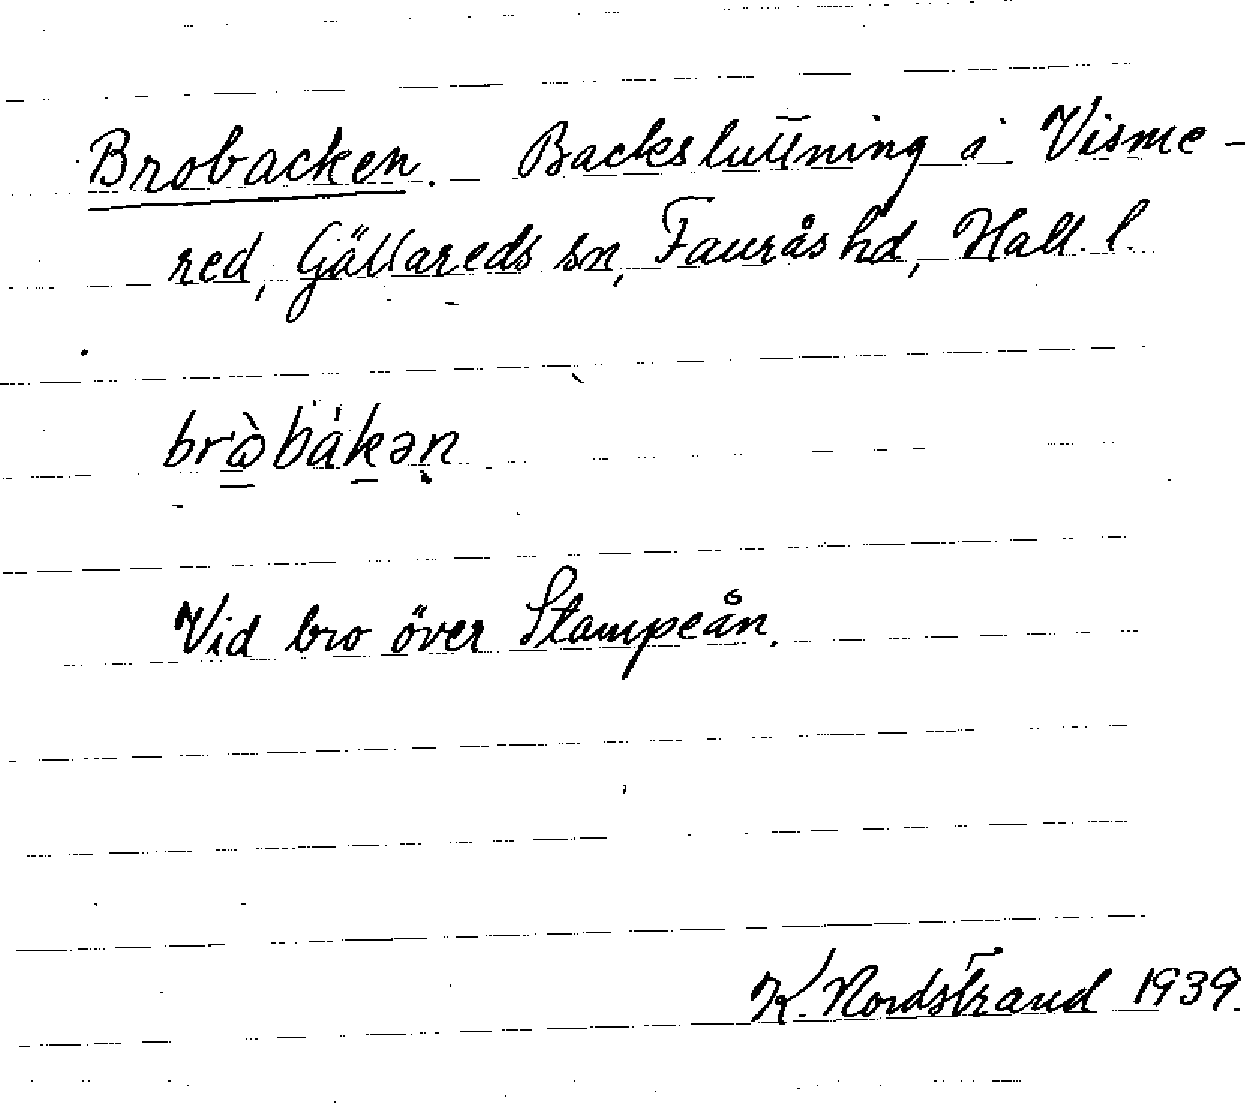 Brobacken. – Backsluttning i Visme-
red, Gällareds sn, Faurås hd, Hall. l.
brὼbákən
Vid bro över Stampeån.
K. Nordstrand 1939.